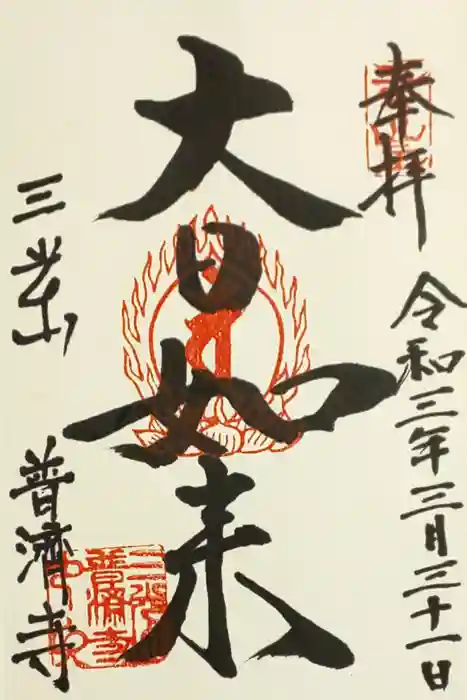 奉拝
令和三年三月三十一日
大日如来
三業山
普済寺